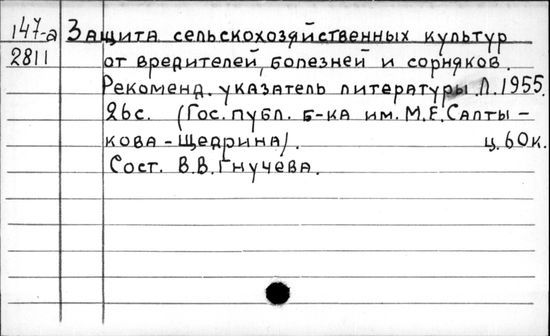 147-а Защита сельскохозяйственных культур
2811 от вредителей, болезней и сорняков.
Рекоменд. указатель литературы. Л. 1955.
26с. (Гос. публ. б-ка им. М.Е. Салты-
кова-Щедрина). ц. 60к.
Сост. В.В. Гнучева.